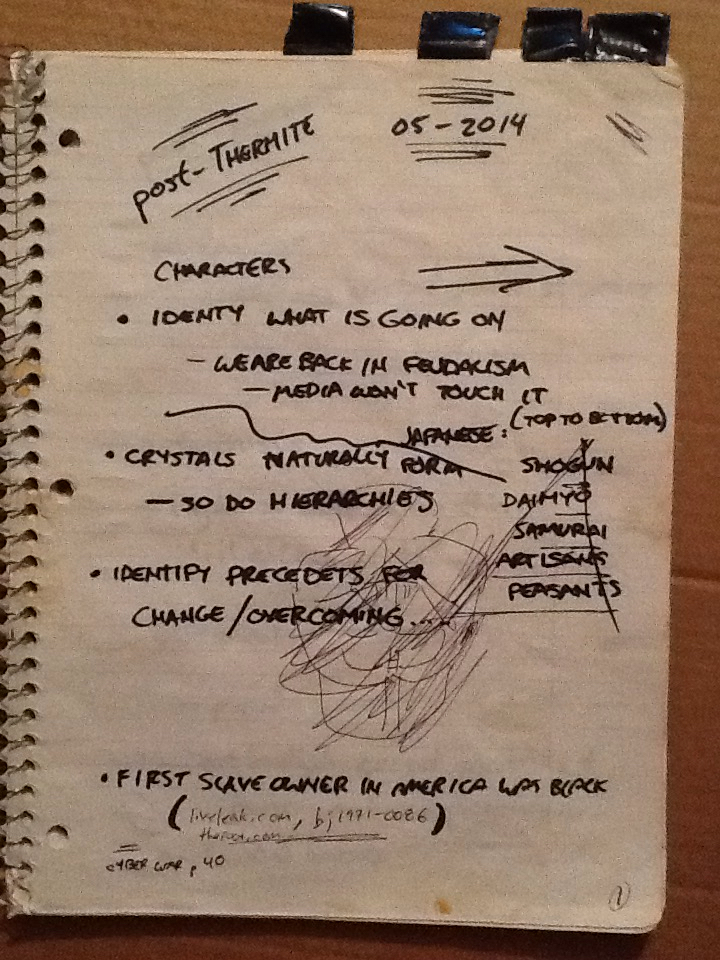 post-THERMITE
05-2014
CHARACTERS
• IDENTY WHAT IS GOING ON
- WE ARE BACK IN FEUDALISM
- MEDIA WON'T TOUCH IT
JAPANESE: (TOP TO BOTTOM)
• CRYSTALS NATURALLY FORM
SHOGUN
- SO DO HIERARCHIES
DAIMYO
SAMURAI
ARTISANS
• IDENTIFY PRECEDETS FOR
PEASANTS
CHANGE/OVERCOMING....
• FIRST SLAVE OWNER IN AMERICA WAS BLACK
(liveleak.com, bj1971-0086)
theroot.com
CYBER WAR, 40
1